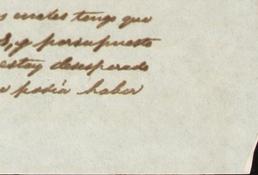 s males tengo que
S, y por supuesto
estoy desesperado
podia haber